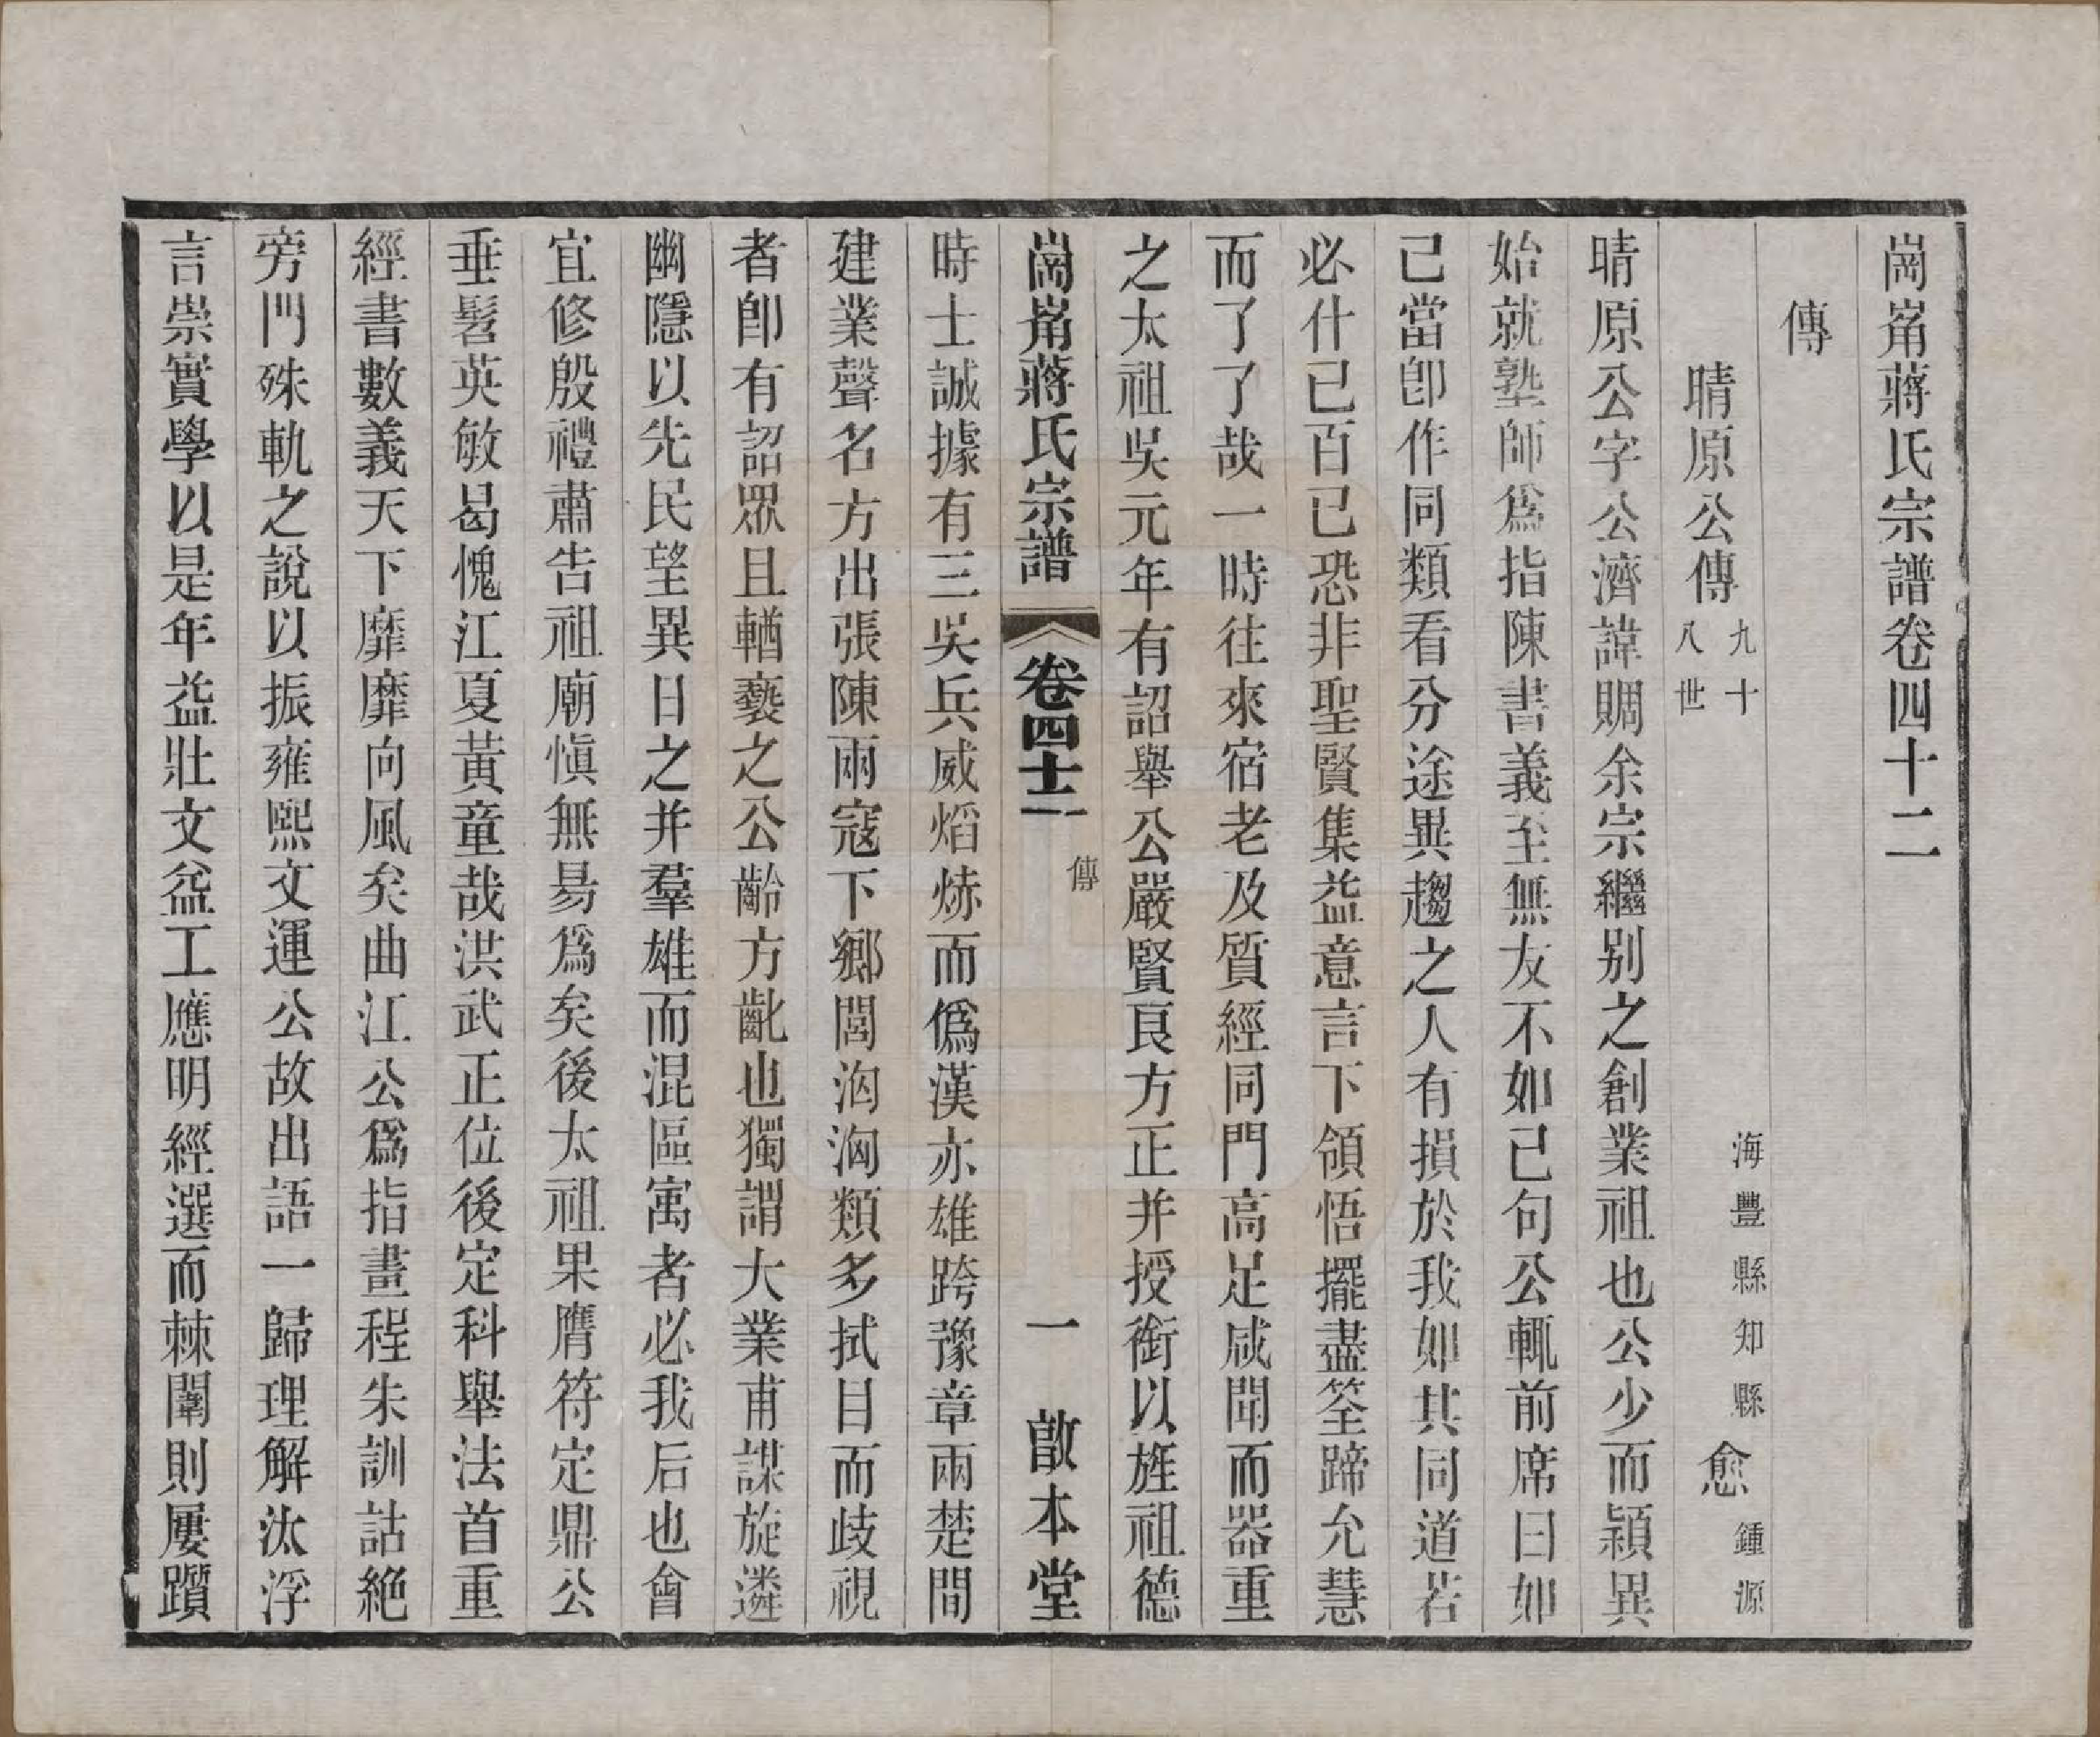 崗㟁蔣氏宗譜卷四十二
傳
晴原公傳 九十八世 海豐縣知縣 愈 鍾源
晴原公字公濟諱賙余宗繼别之創業祖也公少而穎異
始就塾師爲指陳書義至無友不如已句公輒前席曰如
已當卽作同類看分途異趨之人有損於我如共同道若
必什已百已恐非聖賢集益意言下領悟擺盡筌蹄允慧
而了了哉一時往來宿老及質經同門高足咸聞而器重
之太祖吳元年有詔舉公嚴賢良方正并授銜以旌祖德
崗㟁蔣氏宗譜 卷四十二 傳 一 啟本堂
時士誠據有三吳兵威熖𤇆而僞漢亦雄跨豫章兩楚間
建業聲名方出張陳兩寇下鄉閭洶洶類多拭目而歧視
者卽有詔眾且輶褻之公齡方齔也獨謂大業甫謀旋遴
幽隱以先民望異日之并羣雄而混區寓者必我后也會
宜修殷禮肅告祖廟愼無昜爲矣後太祖果膺符定鼎公
垂髫英敏曷愧江夏黃童哉洪武正位後定科舉法首重
經書數義天下靡靡向風矣曲江公爲指畫程朱訓詁絕
旁門殊軌之說以振雍熙文運公故出語一歸理解汰浮
言崇實學以是年益壯文益工應明經選而棘闈則屢躓